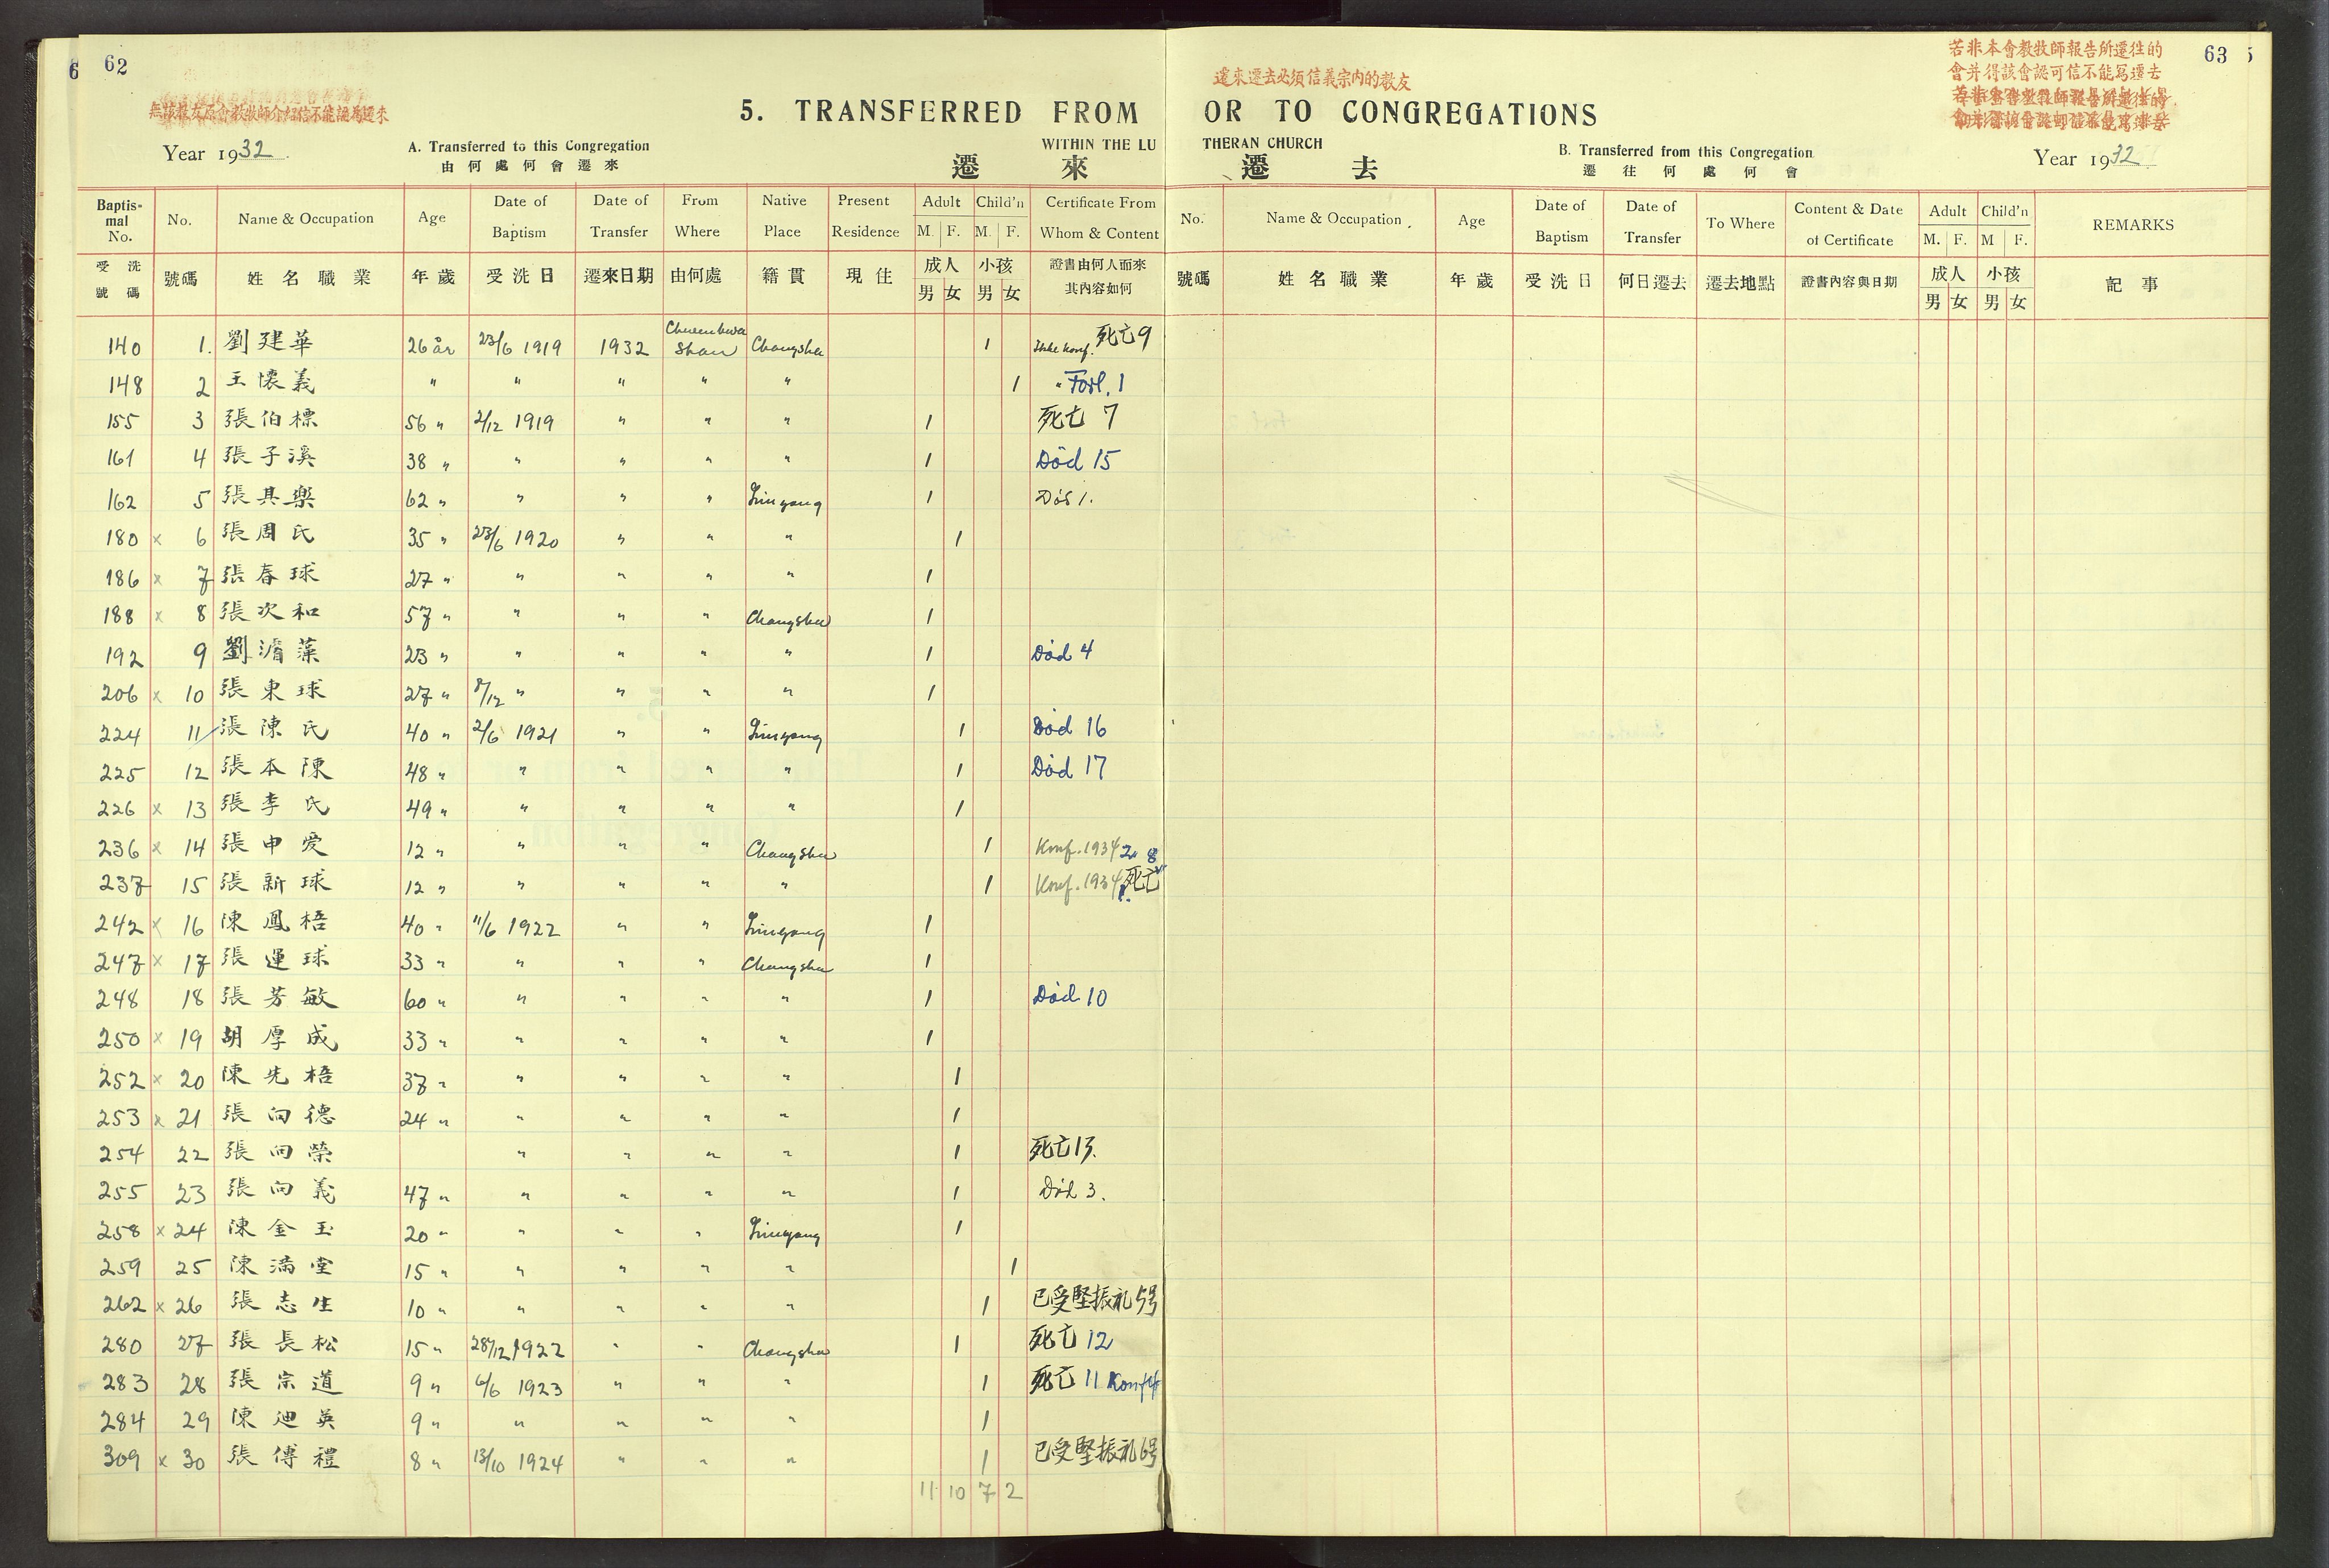 62
無該教友原會教牧師介紹信不能認為遷來
Year 1932.
A. Transferred to this Congregation
由何處何會遷來
5. TRANSFERRED FROM
WITHIN THE LU
遷 來
Baptis-mal No. No. Name & Occupation Age Date of Baptism Date of Transfer From Where Native Place Present Residence Adult M. F. Child'n M. F. Certificate From Whom & Content
受洗號碼 號碼 姓名職業 年歲 受洗日 遷來日期 由何處 籍貫 現住 成人 男 女 小孩 男 女 證書由何人而來其內容如何
140 1. 劉建華 26 år 23/6 1919 1932 Shan Changsha 1 Ikke konf. 死亡 9
148 2 王懷義 " " " " " 1 " Forl. 1
155 3 張伯標 56 " 2/12 1919 " " " 1 死亡 7
161 4 張子溪 38 " " " " " 1 Död 15
162 5 張其樂 62 " " " " 1 Död 1.
180 x 6 張周氏 35 " 23/6 1920 " " " 1
186 x 7 張春球 27 " " " " " 1
188 x 8 張次和 57 " " " " Changsha 1
192 9 劉藻 23 " " " " " 1 Död 4
206 x 10 張東球 27 " /12 " " " " 1
224 11 張陳氏 40 " 2/6 1921 " " 1 Död 16
225 12 張本陳 48 " " " " " 1 Död 17
226 x 13 張李氏 49 " " " " " 1
236 x 14 張申愛 12 " " " " Changsha 1 Konf. 1934 2 8
237 15 張新球 12 " " " " " 1 Konf. 1934 死亡
242 x 16 陳鳳梧 40 " 11/6 1922 " " 1
247 x 17 張運球 33 " " " " Changsha 1
248 18 張芳敏 60 " " " " " 1 Död 10
250 x 19 胡厚成 33 " " " " " 1
252 x 20 陳先梧 37 " " " " " 1
253 x 21 張向德 24 " " " " " 1
254 22 張向榮 " " " " 1 死亡 13.
255 23 張向義 47 " " " " " 1 Död 3.
258 x 24 陳金玉 20 " " " " 1
259 25 陳滿堂 15 " " " " " 1
262 x 26 張志生 10 " " " " " 1 已受堅振礼5号
280 27 張長松 15 " 28/12 1922 " " Changsha 1 死亡 12
283 28 張宗道 9 " 6/6 1923 " " " 1 死亡 11 Konf
284 29 陳迪英 9 " " " " " 1
309 x 30 張傳禮 8 " 13/10 1924 " " " 1 已受堅振礼6号
11 10 7 2
遷來遷去必須信義宗內的教友
若非本會教牧師報告所遷往的
會并得該會認可信不能寫遷去
63
OR TO CONGREGATIONS
THERAN CHURCH
遷 去
B. Transferred from this Congregation
遷往何處何會
Year 1932
No. Name & Occupation Age Date of Baptism Date of Transfer To Where Content & Date of Certificate Adult M. F. Child'n M F. REMARKS
號碼 姓名職業 年歲 受洗日 何日遷去 遷去地點 證書內容與日期 成人 男 女 小孩 男 女 記事